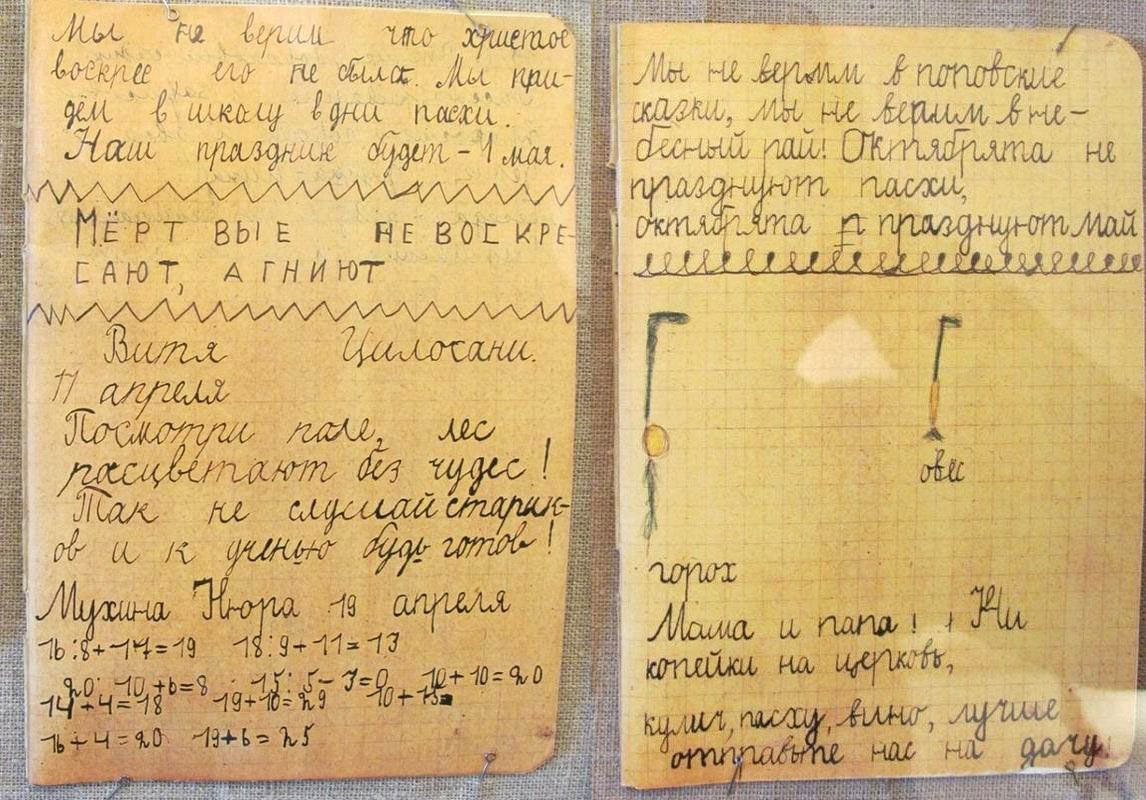 Мы не верим что христос
воскрес его не было. Мы при-
дем в школу в дни пасхи.
Наш праздник будет - 1 мая.
МЁРТВЫЕ НЕ ВОСКРЕ-
САЮТ, А ГНИЮТ
Витя Цилосани.
17 апреля
Посмотри поле, лес
расцветают без чудес!
Так не слушай старик-
ов и к ученью будь готов!
Мухина Нюра 19 апреля
16:8+17=19 18:9+11=13
20:10+6=8 15:5-3=0 10+10=20
14+4=18 19+10=29 10+15=
16+4=20 19+6=25
Мы не верим в поповские
сказки, мы не верим в не-
бесный рай! Октябрята не
празднуют пасхи,
октябрята п празднуют май
овес
горох
Мама и папа! Ни
копейки на церковь,
кулич, пасху, вино, лучше
отправьте нас на дачу!